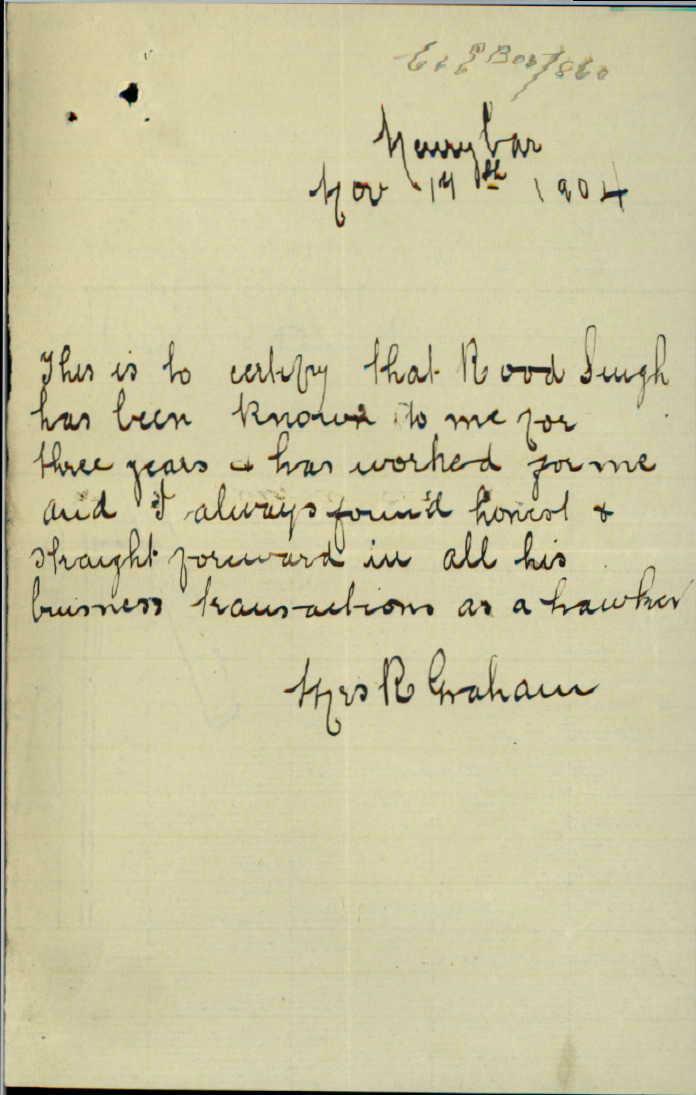 Nov 14th 1904
This is to certify that Rood Singh
has been known to me for
three years & has worked for me
and I always found honest &
straight forward in all his
buisness transactions as a hawker
Mrs R Graham